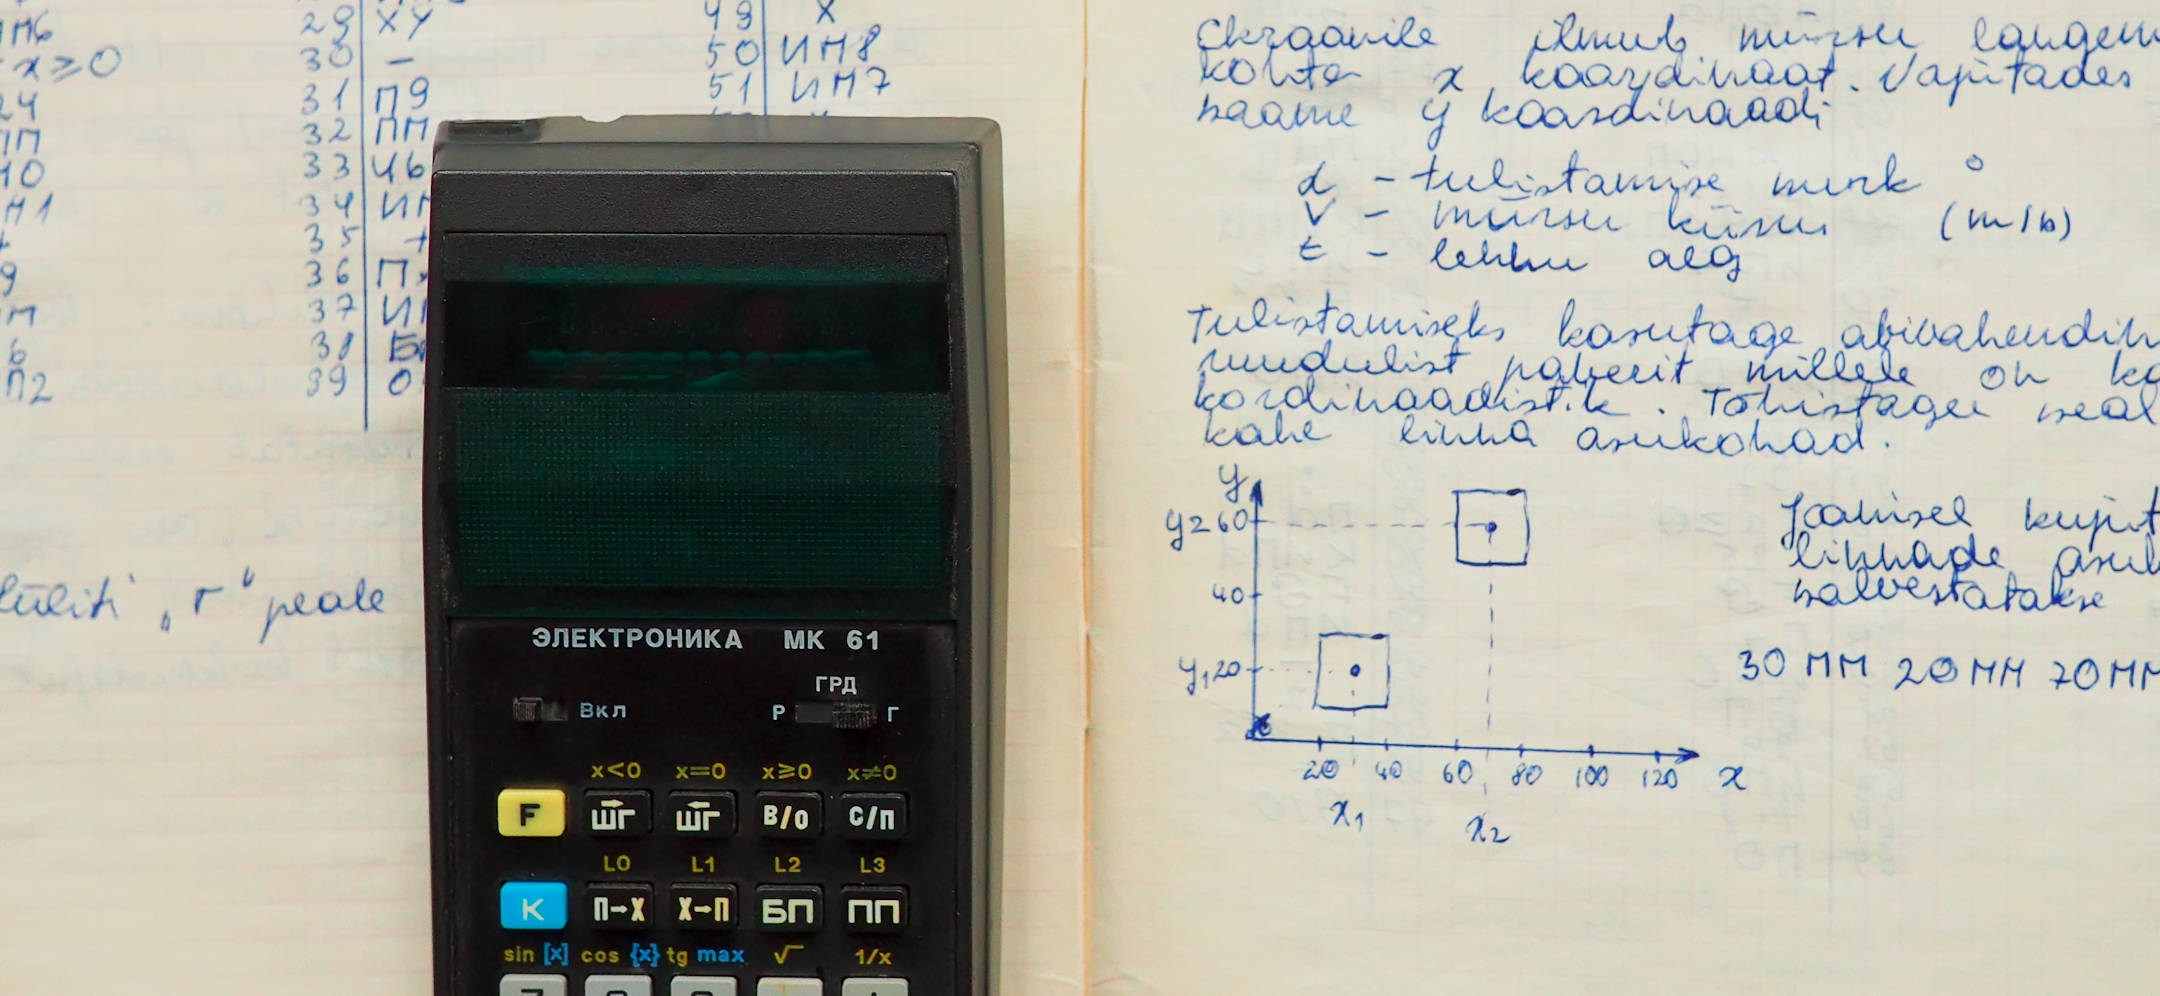 29 ХУ
30 -
31 П9
32 ПП
33 Ч6
34 ИП
35 +
36 Пх
37 ИП
38 Б
39 0
49 Х
50 ИП8
51 ИП7
x≥0
24
ПП
П2
"r" peale
ЭЛЕКТРОНИКА МК 61
ГРД
Вкл Р Г
x<0 x=0 x≥0 x≠0
F ШГ ШГ В/О С/П
L0 L1 L2 L3
К П→Х Х→П БП ПП
sin [x] cos {x} tg max √ 1/x
Ekraanile ilmub mürsu langem
kohta x koordinaat. Vajutades
saame y koordinaadi
α - tulistamise nurk °
V - mürsu kiirus (m/s)
t - lennu aeg
Tulistamiseks kasutage abivahendin
ruudulist paberit millele on ka
kordinaadistik. Tähistage seal
kahe linna asukohad.
y
y2 60
40
y1 20
20 40 60 80 100 120 x
x1 x2
Joonisel kujut
linnade asuk
salvestatakse
30 ПП 20 ПП 70 ПП